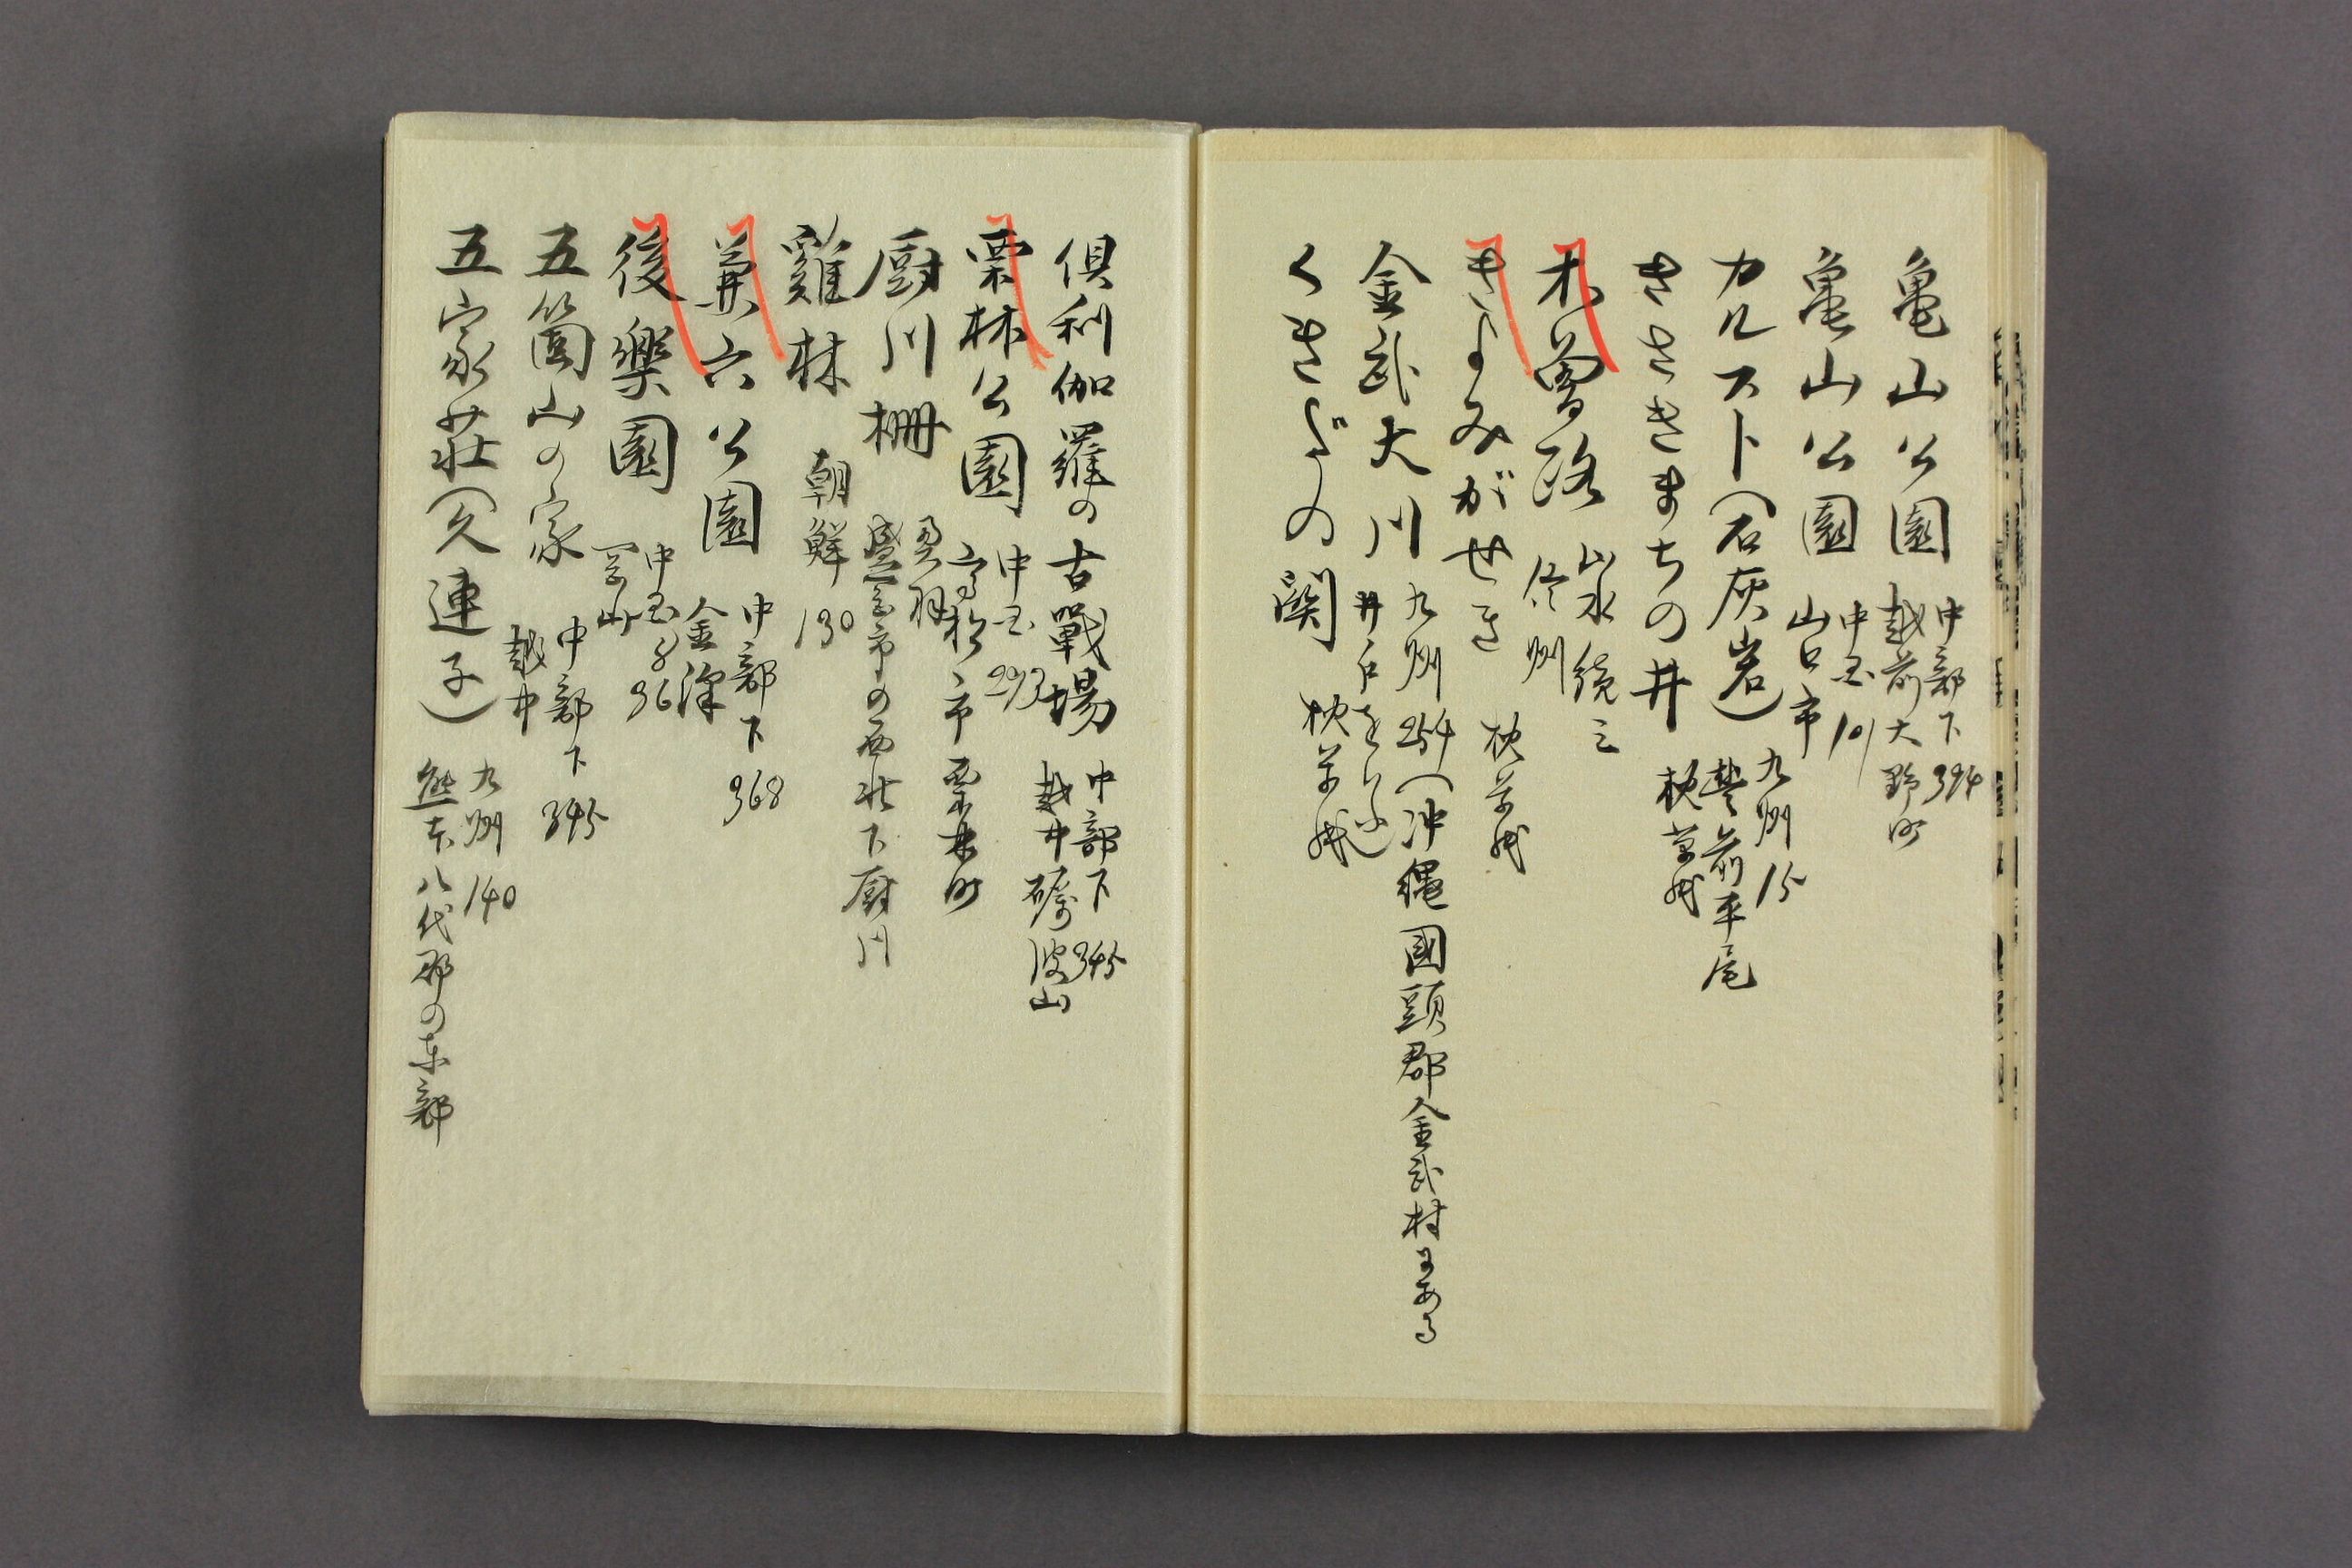 亀山公園 中部下394
越前大野町
亀山公園 中国101
山口市
カルスト(石灰岩) 九州15
豊前平尾
きさきまちの井 枕草紙
木曽路 山水続三
信州
きよみがせき 枕草紙
金武大川 九州254(沖縄國頭郡金武村にある
井戸をいふ)
くきだの関 枕草紙
倶利伽羅の古戰場 中部下345
越中礪波山
栗林公園 中国293
高松市栗林町
厨川柵 奥羽
盛岡市の西北下厨川
雞林 朝鮮130
兼六公園 中部下368
金澤
後樂園 中国ト36
岡山
五箇山の家 中部下345
越中
五家荘(久連子) 九州140
熊本八代郡の東部